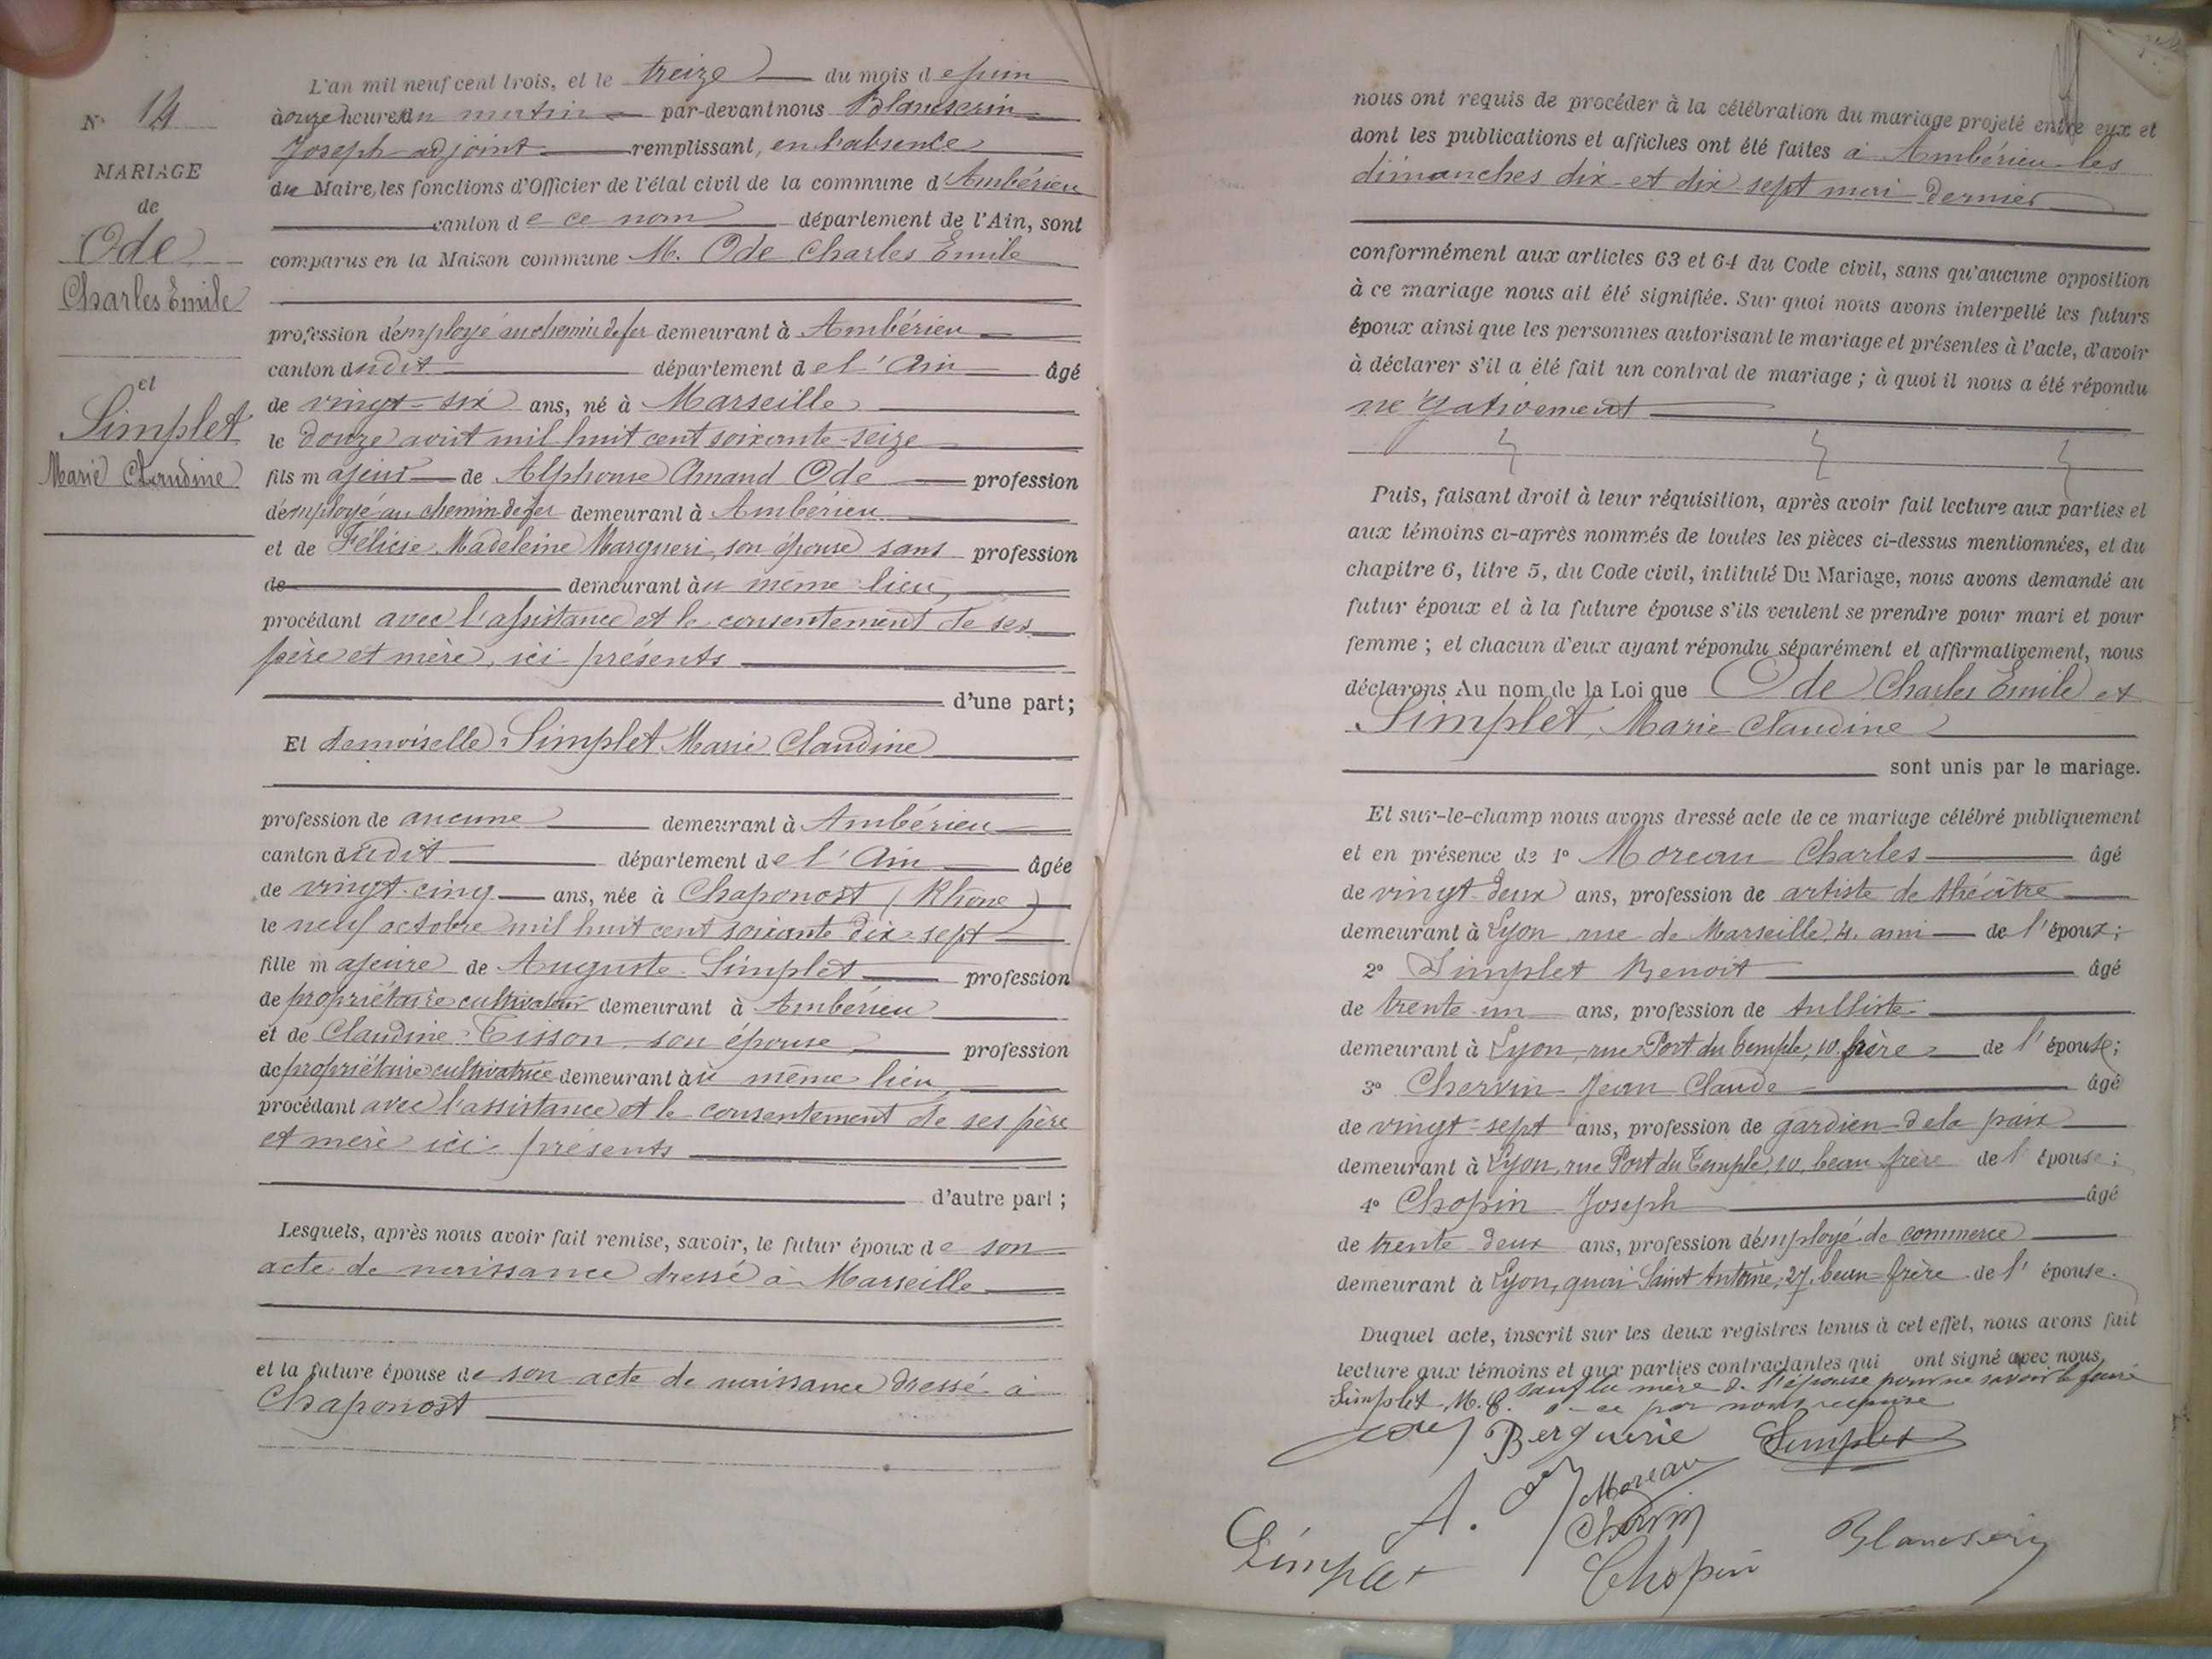 N° 14
MARIAGE
de
Ode
Charles Emile
et
Simplet
Marie Claudine
L'an mil neuf cent trois, et le treize du mois de juin
à onze heures du matin par-devant nous Blancserin
Joseph adjoint remplissant, en l'absence
du Maire, les fonctions d'Officier de l'état civil de la commune d'Ambérieu
canton de ce nom département de l'Ain, sont
comparus en la Maison commune M. Ode Charles Emile
profession d'employé au chemin de fer demeurant à Ambérieu
canton dudit département de l'Ain âgé
de vingt-six ans, né à Marseille
le douze août mil huit cent soixante-seize
fils majeur de Alphonse Amand Ode profession
d'employé au chemin de fer demeurant à Ambérieu
et de Félicie Madeleine Margueri, son épouse sans profession
de demeurant au même lieu,
procédant avec l'assistance et le consentement de ses
père et mère, ici présents
d'une part;
Et demoiselle Simplet Marie Claudine
profession de aucune demeurant à Ambérieu
canton dudit département de l'Ain âgée
de vingt-cinq ans, née à Chaponost (Rhône)
le neuf octobre mil huit cent soixante dix-sept
fille majeure de Auguste Simplet profession
de propriétaire cultivateur demeurant à Ambérieu
et de Claudine Tisson son épouse profession
de propriétaire cultivatrice demeurant au même lieu,
procédant avec l'assistance et le consentement de ses père
et mère ici présents
d'autre part;
Lesquels, après nous avoir fait remise, savoir, le futur époux de son
acte de naissance dressé à Marseille
et la future épouse de son acte de naissance dressé à
Chaponost
nous ont requis de procéder à la célébration du mariage projeté entre eux et
dont les publications et affiches ont été faites à Ambérieu les
dimanches dix et dix sept mai dernier
conformément aux articles 63 et 64 du Code civil, sans qu'aucune opposition
à ce mariage nous ait été signifiée. Sur quoi nous avons interpellé les futurs
époux ainsi que les personnes autorisant le mariage et présentes à l'acte, d'avoir
à déclarer s'il a été fait un contrat de mariage; à quoi il nous a été répondu
négativement
Puis, faisant droit à leur réquisition, après avoir fait lecture aux parties et
aux témoins ci-après nommés de toutes les pièces ci-dessus mentionnées, et du
chapitre 6, titre 5, du Code civil, intitulé Du Mariage, nous avons demandé au
futur époux et à la future épouse s'ils veulent se prendre pour mari et pour
femme; et chacun d'eux ayant répondu séparément et affirmativement, nous
déclarons Au nom de la Loi que Ode Charles Emile et
Simplet, Marie Claudine
sont unis par le mariage.
Et sur-le-champ nous avons dressé acte de ce mariage célébré publiquement
et en présence de 1° Moreau Charles âgé
de vingt-deux ans, profession de artiste de théâtre
demeurant à Lyon, rue de Marseille, 4, ami de l'époux;
2° Simplet Benoit âgé
de trente-un ans, profession de tulliste
demeurant à Lyon, rue Port du Temple, 10, frère de l'épouse;
3° Chervin Jean Claude âgé
de vingt-sept ans, profession de gardien de la paix
demeurant à Lyon, rue Port du Temple, 10, beau frère de l'épouse;
4° Chopin Joseph âgé
de trente deux ans, profession d'employé de commerce
demeurant à Lyon, quai Saint Antoine, 27, beau-frère de l'épouse.
Duquel acte, inscrit sur les deux registres tenus à cet effet, nous avons fait
lecture aux témoins et aux parties contractantes qui ont signé avec nous
Simplet M. C. sauf la mère de l'épouse pour ne savoir le faire
de ce par nous requise
Berguirie Simplet
Moreau
Chervin
Simplet Chopin Blancserin